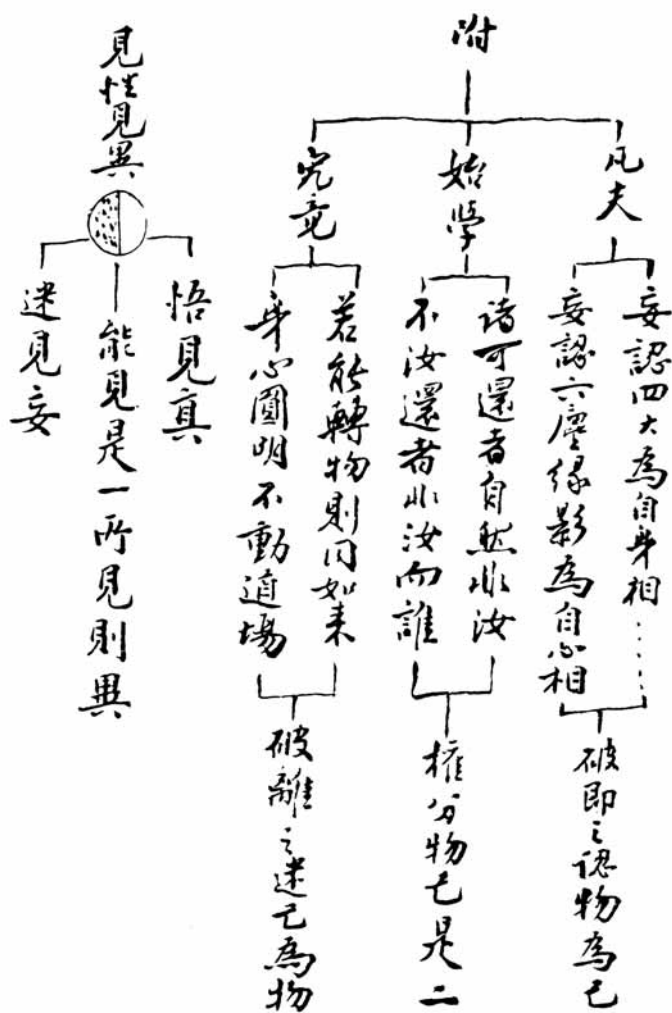 附
凡夫
妄認四大為自身相……
妄認六塵緣影為自心相
破即之認物為己
始學
諸可還者自然非汝
不汝還者非汝而誰
權分物己是二
究竟
若能轉物則同如来
身心圓明不動道場
破離之迷己為物
見性見異
悟見真
能見是一所見則異
迷見妄